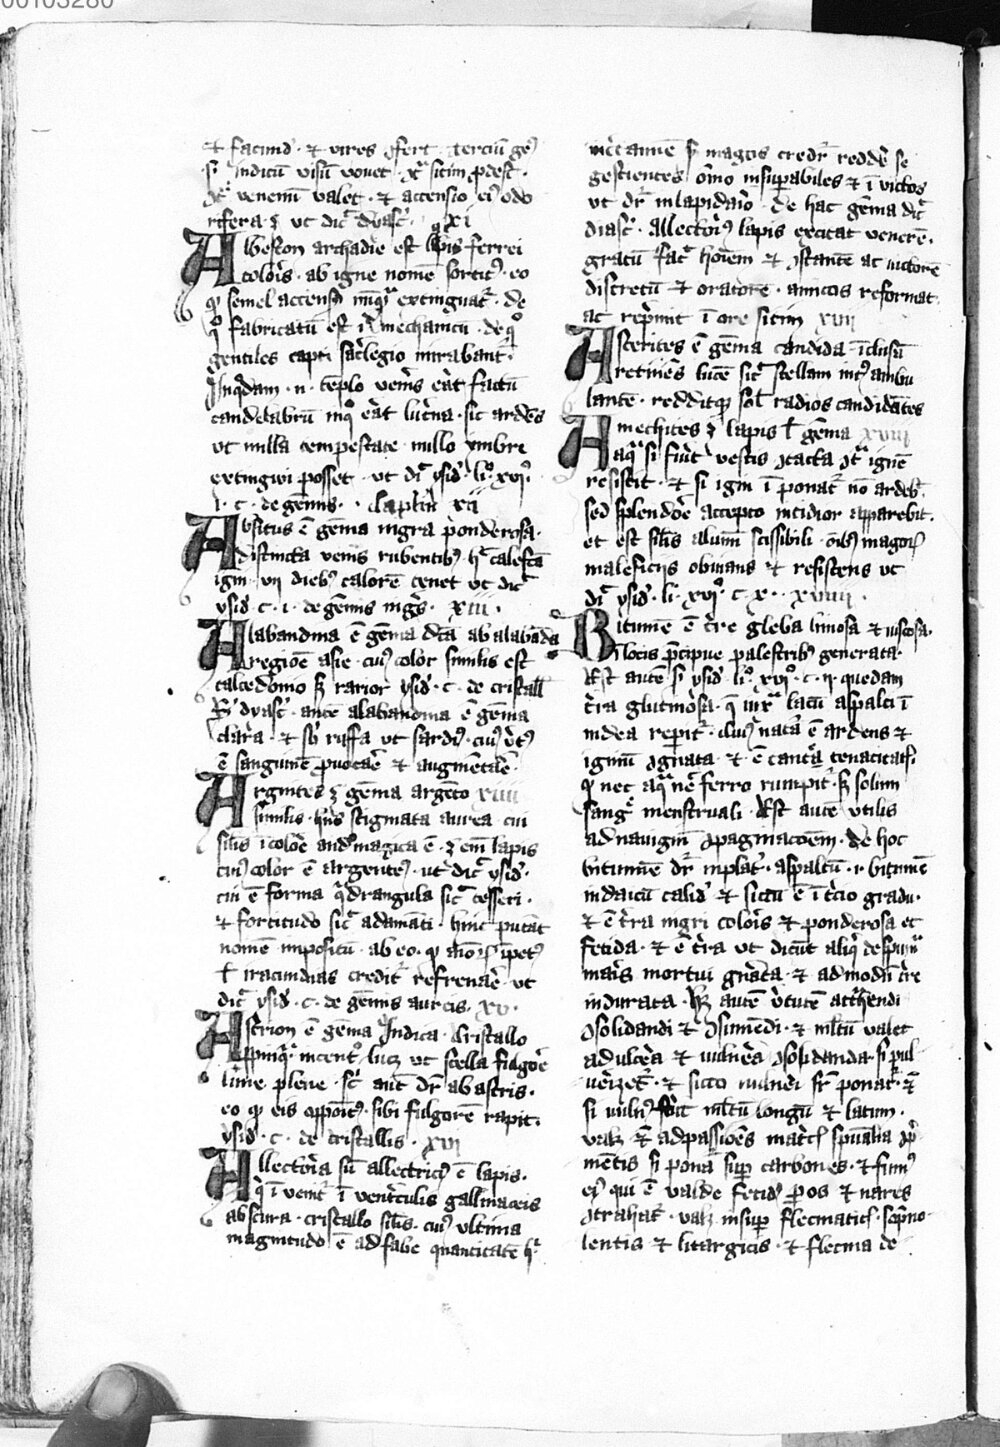 00103280
⁊ facund ⁊ vires ꝯfert terciū geꝰ
venenū valet ⁊ accensio eiꝰ odo
rifera ⁊ ut dic̄ dyasc̄ xi
Abeston archadie est lapis ferrei
coloris ab igne nomē sortitꝰ eo
ꝙ semel accensꝰ nūqͣ extinguat̄ de
quo fabricatū est mechanicū de qͦ
gentiles capti sac̄legio mirabant̄
In qͦdam n templo veneris erat factū
candelabrū in quo erat lucerna sic ardēs
ut nulla tempestate nullo ymbri
extingui posset ut dic̄ ysid li xvi
c de gēmis Capl̄m xii
Absitus ē gēma nigra ponderosa
distincta venis rubentibꝰ hec calefcā
igni vii diebꝰ calorē tenet ut dic̄
ysid c i de gēmis nigris xiii
Alabandina ē gēma dcā ab alabāda
regiōe asie cuiꝰ color similis est
calcedonio sꝫ rarior ysid c de cristall
dyasc̄ autē alabandina ē gēma
clara ⁊ sb̄ ruffa ut sardiꝰ cuiꝰ v̄tꝰ
ē sanguinē prouocare ⁊ augmētare
Argirites ē gēma argēto xiiii
similis hn̄s stigmata aurea cui
silis ī colore androdragma ē ⁊ em̄ lapis
cuiꝰ color ē argenteꝰ ut dic̄ ysid
cui ē forma qͣdrangula sic̄ tesseri
⁊ fortitudo sic̄ adamāti hinc putāt
nomē impositū ab eo ꝙ aīoꝝ īpetꝰ
l iracundias credit̄ refrenare ut
dic̄ ysid c de gēmis aureis xv
Astrion ē gēma Indica cristallo
ꝓpinqͣ in cuiꝰ cent̄o lucꝫ ut stella fulgore
lune plene sic autē dr̄ ab astris
eo ꝙ eis oppoitꝰ sibi fulgorē rapit
ysid c de cristallis xvi
Allectoria siū allectricꝰ ē lapis
qͥ īvenit̄ ī ventriculis gallinaceis
abscura cristallo silis cuiꝰ ultima
magnitudo ē ad fabe quantitatē hͣ
in certamine magos credr̄ reddē se
gestientes omo insuꝑabiles ⁊ īvictos
ut dr̄ in lapidario de hac gēma dic̄
diasc̄ allectoriꝰ lapis excitat venerē
gratū fac̄ hoīem ⁊ ꝯstantē ac victorē
discretū ⁊ oratorē amicos reformat
ac repͥmit ī ore sitim xvii
Asterites ē gēma candida īclusā
retinēs lucē sic̄ stellam intꝰ ambu
lantē redditqꝫ sol radios candidātes
Amechites ē lapis l gēma xviii
a qͣ si fuit vestis ꝯtacta ꝯtͣ ignē
resistit ⁊ si igni īponat̄ nō ardebͭ
sed splendore accepto nitidior apparebit
et est silis alumi scissibili oībꝰ magoꝝ
maleficiis obuians ⁊ resistens ut
dic̄ ysid li xvi c x xviiii
Bitumē ē terre gleba limosa ⁊ viscosa
ī locis p̄cipue palestribꝰ generata
Est autē sī ysid li xvi c ii quedam
terra glutinosa qͣ iuxͣ lacū aspalti ī
iudea reperit̄ cuiꝰ natā ē ardens ⁊
ignium ꝯgnata ⁊ ē tanta tenacitatꝭ
ꝙ nec aqͣ nec ferro rumpit̄ sꝫ solum
sangͥe menstruali Est autē utilis
ad navigium ꝯpaginacōem de hoc
bitumē dr̄ in plat̄ aspaltū i bitumē
iudaicū calid ⁊ siccū ē ī tercio gradu
⁊ ē terra nigri coloris ⁊ ponderosa et
fetida ⁊ ē terra ut dicūt aliqͥ de spuma
maris mortui gnͣata ⁊ ad modū terre
indurata hꝫ autē v̄tutē att̄hendi
ꝯsolidandi ⁊ ꝯsumēdi ⁊ mltū valet
ad ulcera ⁊ vulnera ꝯsolidanda si pul
verizet̄ ⁊ sicco vulneri supponat̄ ⁊
si vulnꝰ fuerit mltū longū ⁊ latum
valꝫ ⁊ ad passiones matric̄
mentis si ponat̄ suꝑ carbones ⁊ fumꝰ
eiꝰ qui ē valde fetidꝰ ꝑ os ⁊ nares
ꝯtrahat̄ valꝫ insuꝑ flecmatic̄ sopno
lentis ⁊ litargicis ⁊ flecma de